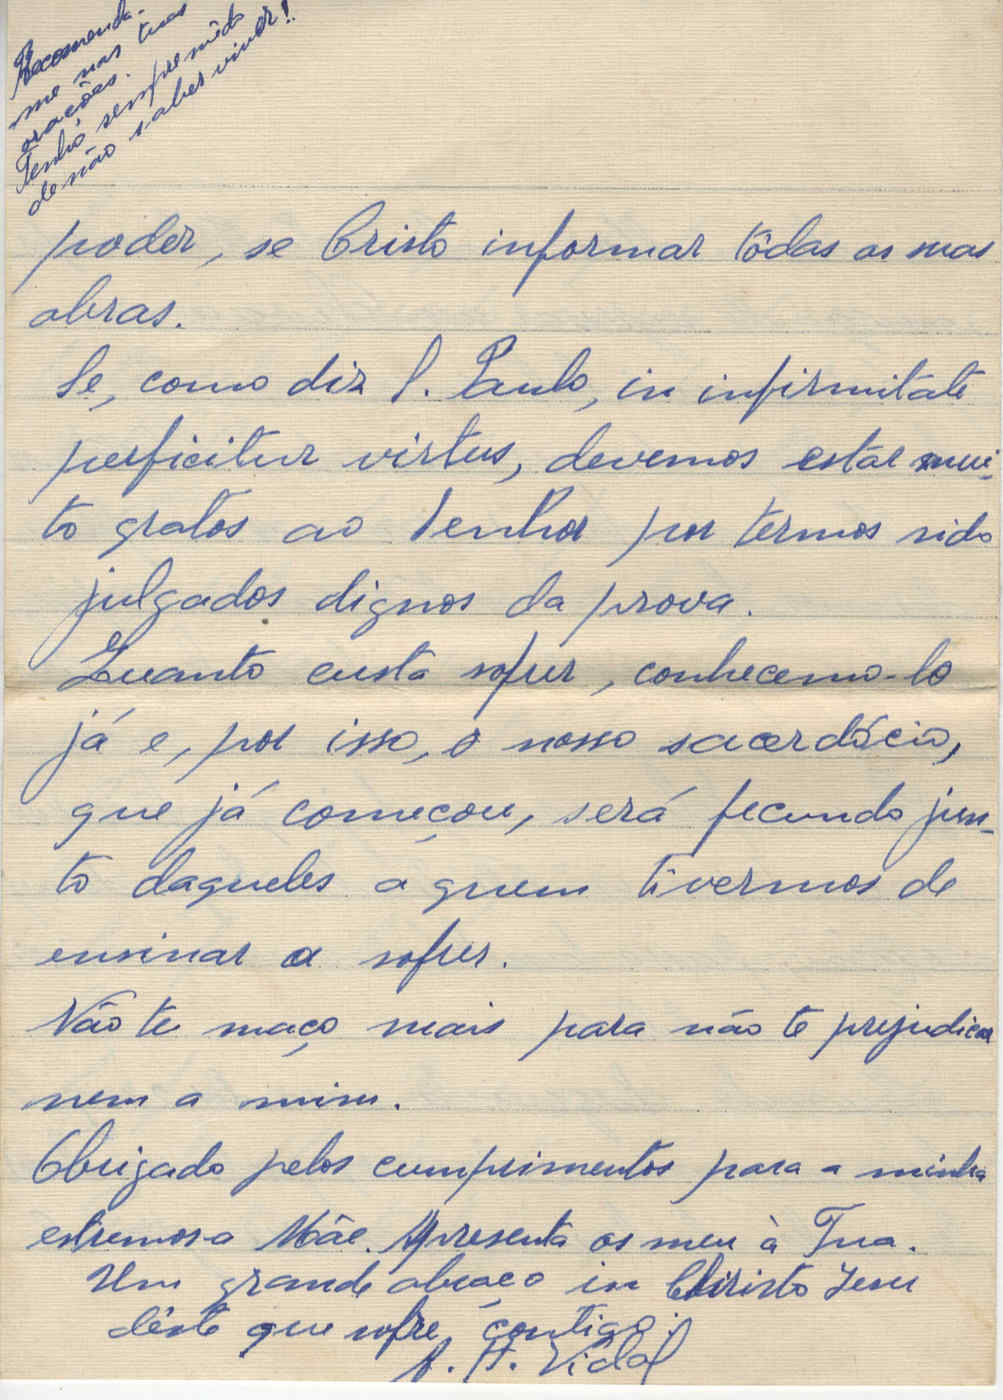 Recomenda-
me nas tuas
orações.
Tenho sempre mêdo
de não saber viver!
poder, se Cristo informar tôdas as suas
obras.
Se, como diz S. Paulo, in infirmitate
perficitur virtus, devemos estar mui-
to gratos ao Senhor por termos sido
julgados dignos da prova.
Quanto custa sofrer, conhecemo-lo
já e, por isso, o nosso sacerdócio,
que já começou, será fecundo jun-
to daqueles a quem tivermos de
ensinar a sofrer.
Não te maço mais para não te prejudicar
nem a mim.
Obrigado pelos cumprimentos para a minha
estremosa Mãe. Apresenta os meu à Tua.
Um grande abraço in Christo Jesu
dêste que sofre contigo.
A. H. Vidal